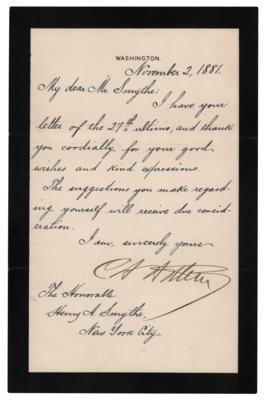 WASHINGTON.
November 2, 1881.
My dear Mr. Smythe:
I have your
letter of the 27th ultimo, and thank
you cordially for your good
wishes and kind expressions.
The suggestions you make regard-
ing yourself will receive due consid-
eration.
I am, sincerely yours
The Honorable
Henry A. Smythe,
New York City.